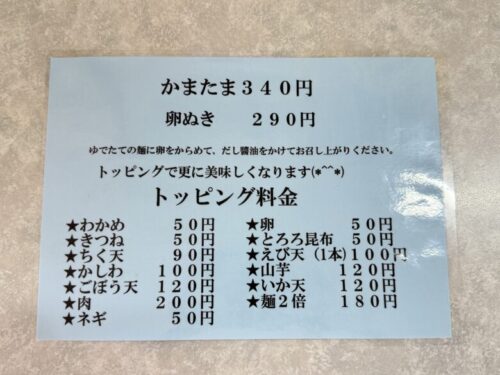 かまたま３４０円
卵ぬき　２９０円
ゆでたての麺に卵をからめて、だし醤油をかけてお召し上がりください。
トッピングで更に美味しくなります(*^^*)
トッピング料金
★わかめ　５０円
★きつね　５０円
★ちく天　９０円
★かしわ　１００円
★ごぼう天　１２０円
★肉　２００円
★ネギ　５０円
★卵　５０円
★とろろ昆布　５０円
★えび天（1本）１００円
★山芋　１２０円
★いか天　１２０円
★麺２倍　１８０円